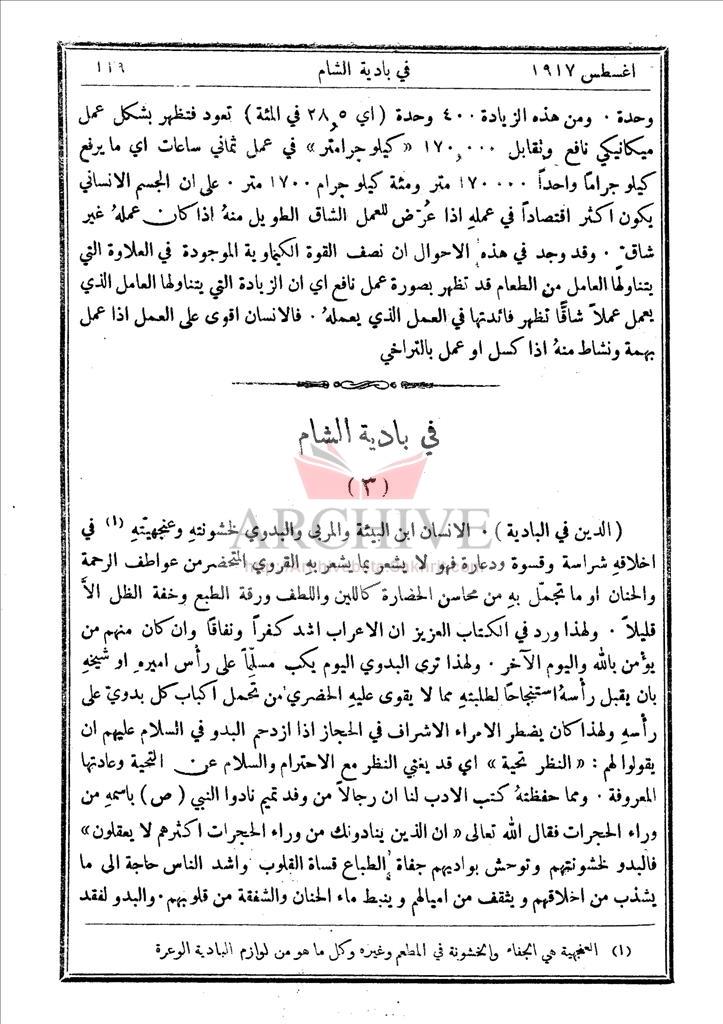 اغسطس ١٩١٧ في بادية الشام ١١٩
وحدة ٠ ومن هذه الزيادة ٤٠٠ وحدة (اي ٢٨,٥ في المئة) تعود فتظهر بشكل عمل
ميكانيكي نافع وتقابل ١٧٠,٠٠٠ «كيلو جرامتر» في عمل ثماني ساعات اي ما يرفع
كيلو جراماً واحداً ١٧٠٠٠٠ متر ومئة كيلو جرام ١٧٠٠ متر ٠ على ان الجسم الانساني
يكون اكثر اقتصاداً في عملهِ اذا عُرّض للعمل الشاق الطويل منهُ اذا كان عملهُ غير
شاقّ ٠ وقد وجد في هذه الاحوال ان نصف القوة الكيماوية الموجودة في العلاوة التي
يتناولها العامل من الطعام قد تظهر بصورة عمل نافع اي ان الزيادة التي يتناولها العامل الذي
يعمل عملاً شاقًا تظهر فائدتها في العمل الذي يعملهُ ٠ فالانسان اقوى على العمل اذا عمل
بهمة ونشاط منهُ اذا كسل او عمل بالتراخي
في بادية الشام
(٣)
ARCHIVE
(الدين في البادية) ٠ الانسان ابن البيئة والمربى والبدوي لخشونتهِ وعنجهيّتهِ (١) في
اخلاقهِ شراسة وقسوة ودعارة فهو لا يشعر بما يشعر بهِ القروي المتحضر من عواطف الرحمة
والحنان او ما تجمّل بهِ من محاسن الحضارة كاللين واللطف ورقة الطبع وخفة الظل الاَّ
قليلاً ٠ ولهذا ورد في الكتاب العزيز ان الاعراب اشد كفراً ونفاقًا وان كان منهم من
يؤمن بالله واليوم الآخر ٠ ولهذا ترى البدوي اليوم يكب مسلّمًا على رأس اميره او شيخهِ
بان يقبل رأسهُ استنجاحًا لطلبتهِ مما لا يقوى عليهِ الحضري من تحمل اكباب كل بدويّ على
رأسهِ ولهذا كان يضطر الامراء الاشراف في الحجاز اذا ازدحم البدو في السلام عليهم ان
يقولوا لهم : «النظر تحية» اي قد يغني النظر مع الاحترام والسلام عن التحية وعادتها
المعروفة ٠ ومما حفظتهُ كتب الادب لنا ان رجالاً من وفد تميم نادوا النبي (ص) باسمهِ من
وراء الحجرات فقال الله تعالى «ان الذين ينادونك من وراء الحجرات اكثرهم لا يعقلون»
فالبدو لخشونتهم وتوحش بواديهم جفاة الطباع قساة القلوب واشد الناس حاجة الى ما
يشذب من اخلاقهم ويثقف من اميالهم وينبط ماء الحنان والشفقة من قلوبهم ٠ والبدو لفقد
(١) العنجهية هي الجفاء والخشونة في المطعم وغيره وكل ما هو من لوازم البادية الوعرة